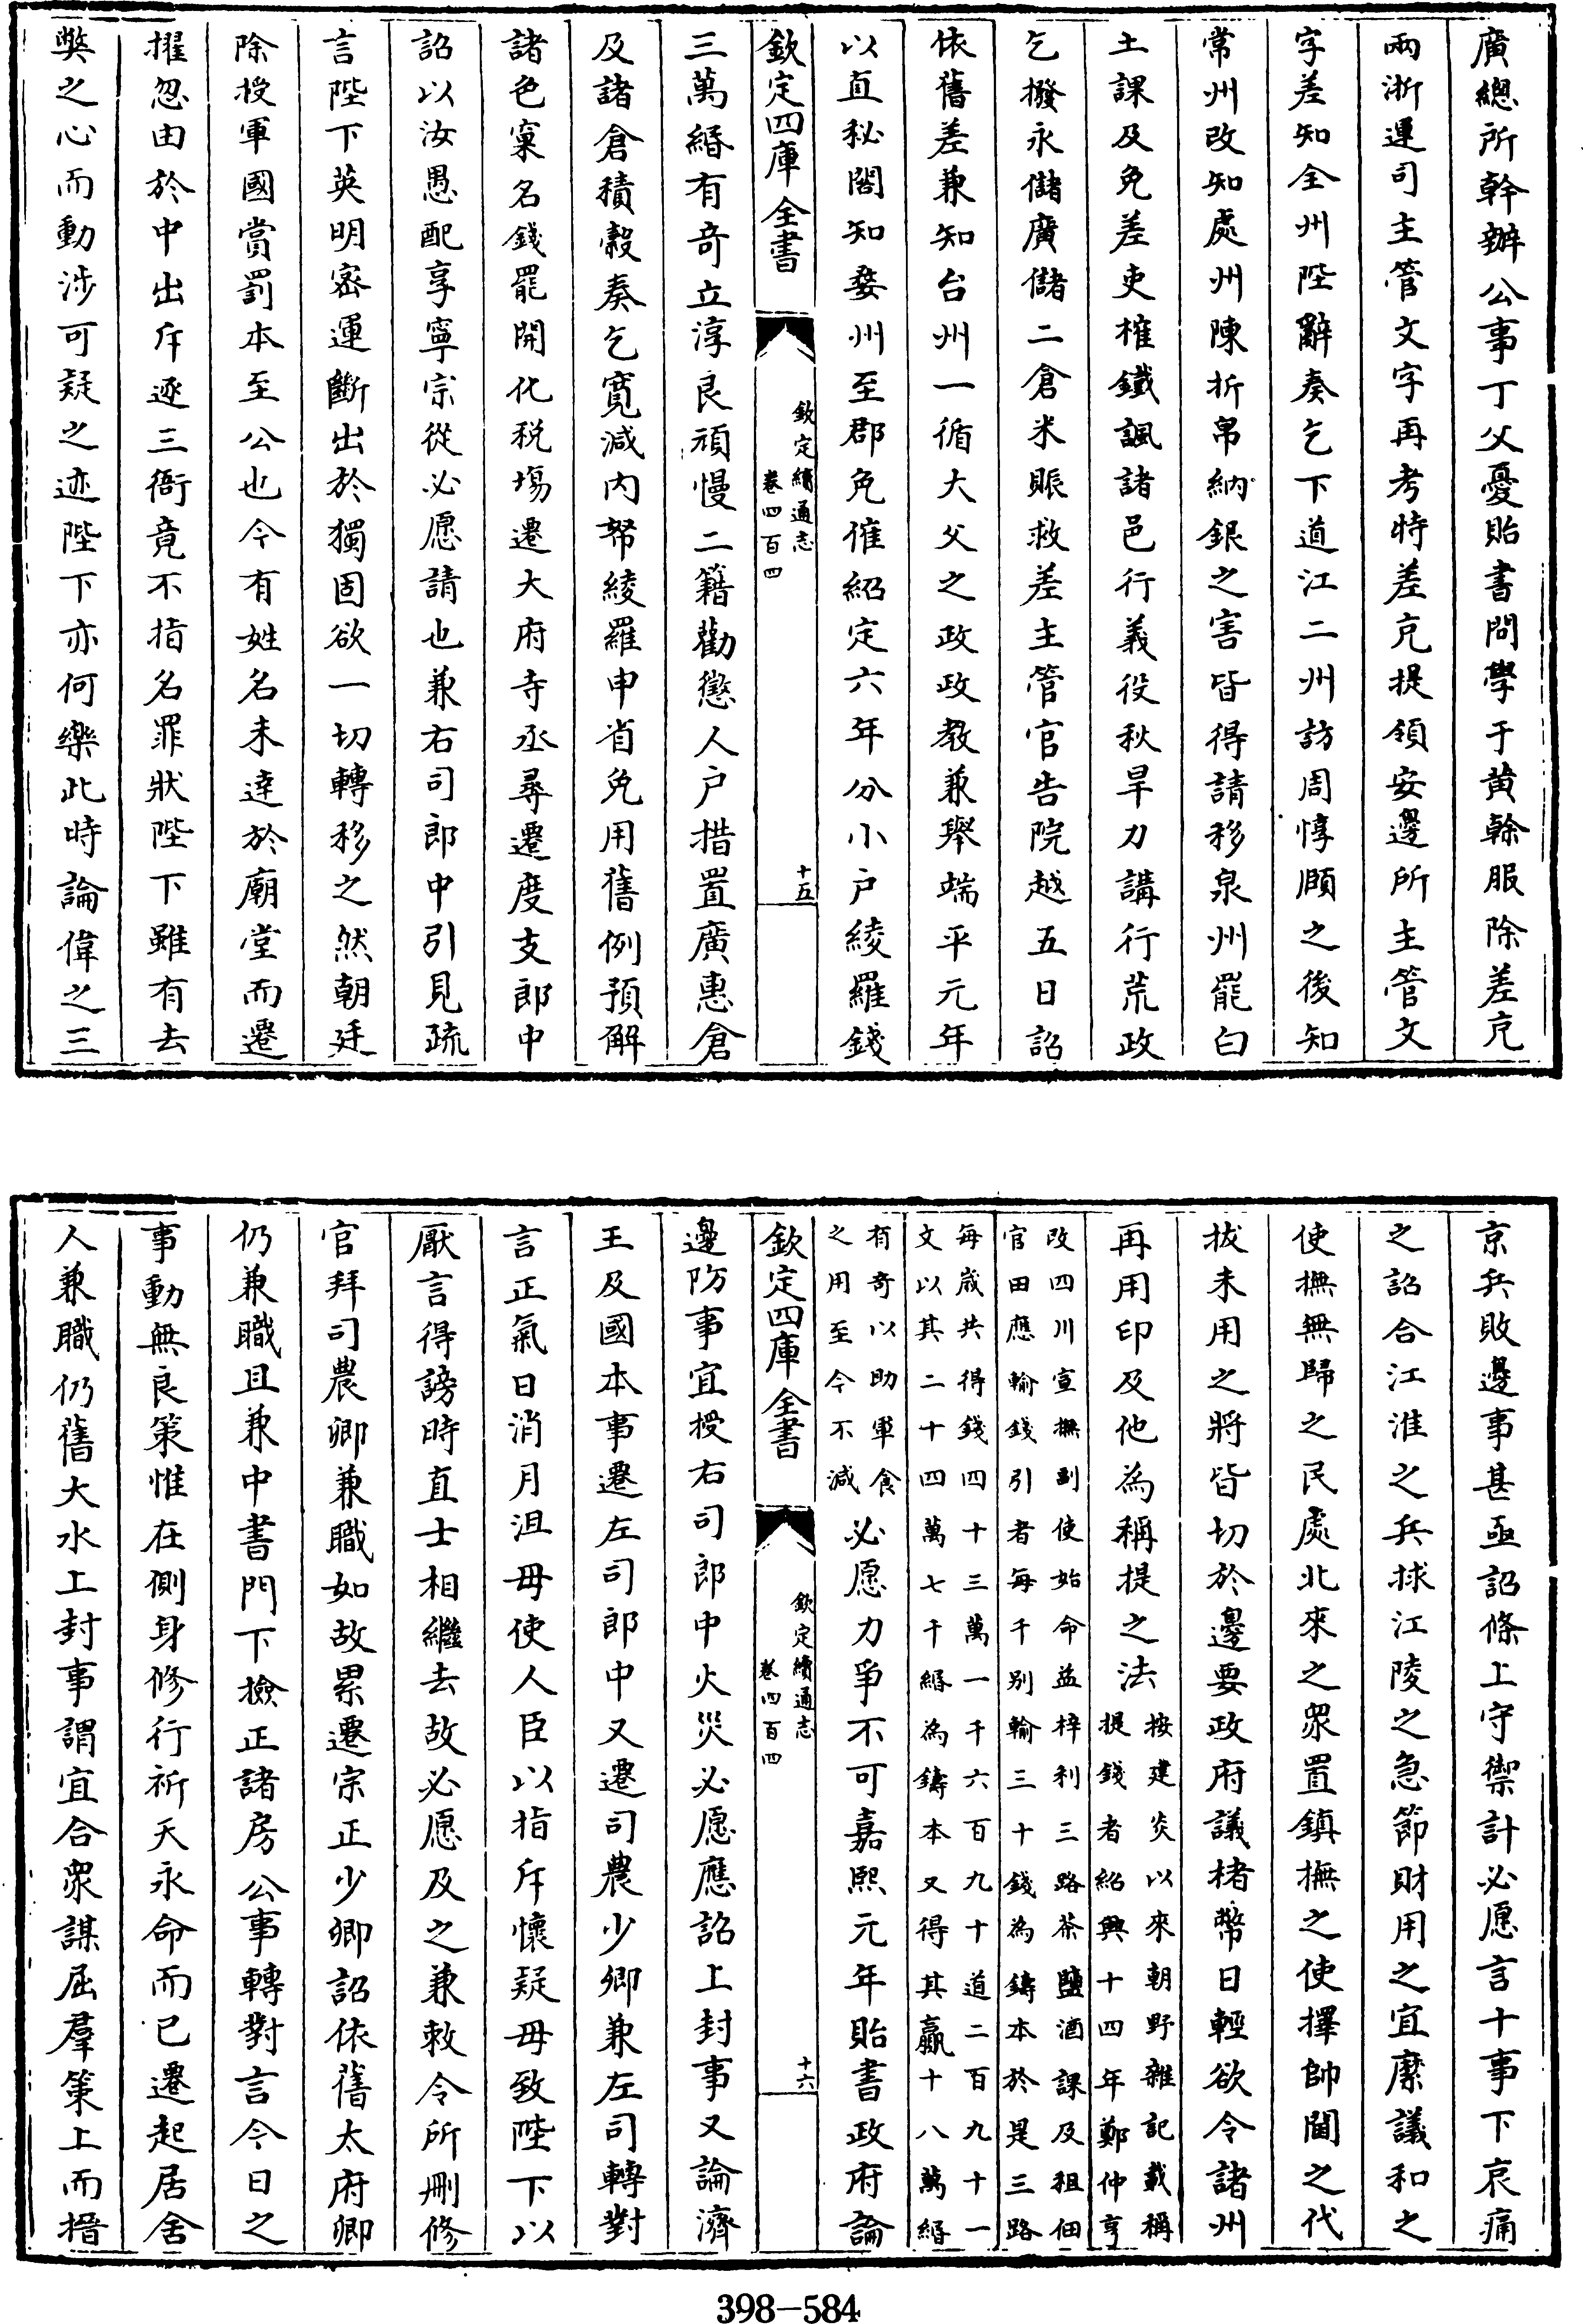 廣總所幹辦公事丁父憂貽書問學于黄榦服除差充
兩浙運司主管文字再考特差充提領安邊所主管文
字差知全州陛辭奏乞下道江二州訪周惇頤之後知
常州改知處州陳折帛納銀之害皆得請移泉州罷白
土課及免差吏榷鐵諷諸邑行義役秋旱力講行荒政
乞撥永儲廣儲二倉米賑救差主管官告院越五日詔
依舊差兼知台州一循大父之政政教兼舉端平元年
以直秘閣知婺州至郡免催紹定六年分小户綾羅錢
欽定四庫全書
欽定續通志
卷四百四
十五
三萬緡有竒立淳良頑慢二籍勸懲人户措置廣惠倉
及諸倉積穀奏乞寛減内帑綾羅申省免用舊例預解
諸色窠名錢罷開化税塲遷大府寺丞尋遷度支郎中
詔以汝愚配享寧宗從必愿請也兼右司郎中引見疏
言陛下英明密運斷出於獨固欲一切轉移之然朝廷
除授軍國賞罰本至公也今有姓名未逹於廟堂而遷
擢忽由於中出斥逐三衙竟不指名罪狀陛下雖有去
弊之心而動涉可疑之迹陛下亦何樂此時論偉之三
京兵敗邊事甚亟詔條上守禦計必愿言十事下哀痛
之詔合江淮之兵拯江陵之急節財用之宜縻議和之
使撫無歸之民處北來之衆置鎮撫之使擇帥閫之代
拔未用之將皆切於邊要政府議楮幣日輕欲令諸州
再用印及他為稱提之法按建炎以來朝野雜記載稱
提錢者紹興十四年鄭仲亨
改四川宣撫副使始命益梓利三路茶鹽酒課及租佃
官田應輸錢引者每千别輸三十錢為鑄本於是三路
每歲共得錢四十三萬一千六百九十道二百九十一
文以其二十四萬七千緡為鑄本又得其贏十八萬緡
有奇以助軍食
之用至今不減必愿力爭不可嘉熙元年貽書政府論
欽定四庫全書
欽定續通志
卷四百四
十六
邊防事宜授右司郎中火災必愿應詔上封事又論濟
王及國本事遷左司郎中又遷司農少卿兼左司轉對
言正氣日消月沮毋使人臣以指斥懷疑毋致陛下以
厭言得謗時直士相繼去故必愿及之兼敕令所刪修
官拜司農卿兼職如故累遷宗正少卿詔依舊太府卿
仍兼職且兼中書門下撿正諸房公事轉對言今日之
事動無良策惟在側身修行祈天永命而已遷起居舍
人兼職仍舊大水上封事謂宜合衆謀屈羣策上而搢
398-584